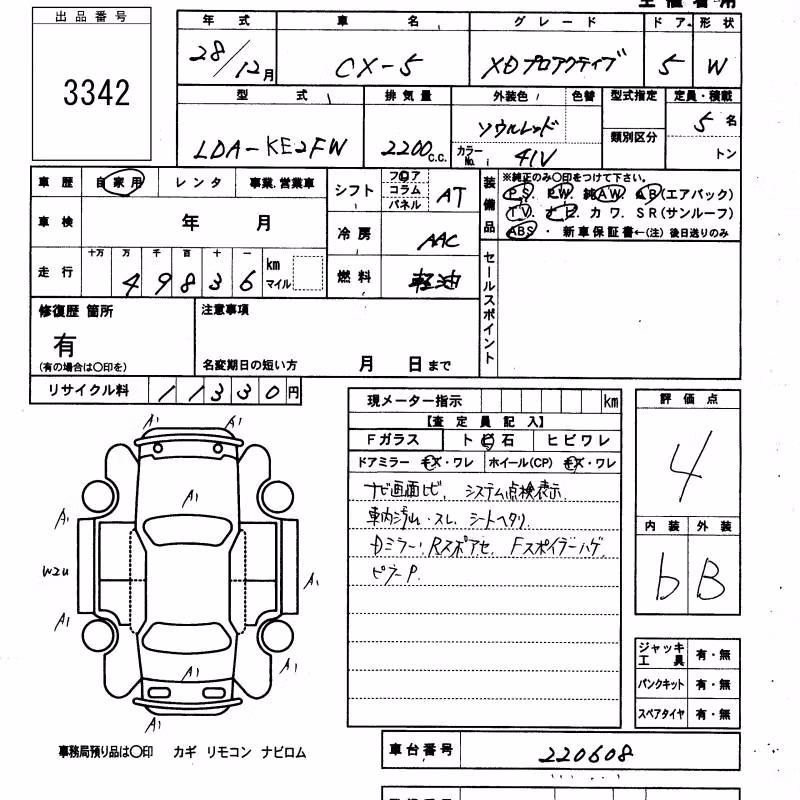 出品番号
3342
年式
28/12月
車名
CX-5
グレード
XDプロアクティブ
ドア
5
形状
W
型式
LDA-KE2FW
排気量
2200c.c.
外装色
ソウルレッド
色替
カラーNo.
41V
型式指定
類別区分
定員・積載
5名
トン
車歴 自家用 レンタ 事業.営業車
車検 年 月
走行 十万 万 千 百 十 一
49836 km マイル
シフト フロア コラム パネル AT
冷房 AAC
燃料 軽油
装備品
※純正のみ〇印をつけて下さい。
PS. PW. 純AW. AB(エアバック)
TV. ナビ. カワ. SR(サンルーフ)
ABS ・ 新車保証書←(注) 後日送りのみ
セールスポイント
修復歴 箇所
有
(有の場合は〇印を)
注意事項
名変期日の短い方 月 日まで
リサイクル料 11330円
現メーター指示 km
【査定員記入】
Fガラス ト ビ 石 ヒビワレ
ドアミラー キズ・ワレ ホイール(CP) キズ・ワレ
ナビ画面ヒビ、システム点検表示
車内汚れ・スレ、シートヘタリ
Dミラー、Rスポアセ、Fスポイラーハゲ
ピラーP.
評価点
4
内装 外装
b B
A1 A1
A1
A1
W2U
A1
A1
A1 A1
A1
ジャッキ工具 有・無
パンクキット 有・無
スペアタイヤ 有・無
事務局預り品は〇印 カギ リモコン ナビロム
車台番号 220608